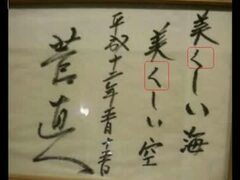 美くしい海
美くしい空
平成十三年
菅直人